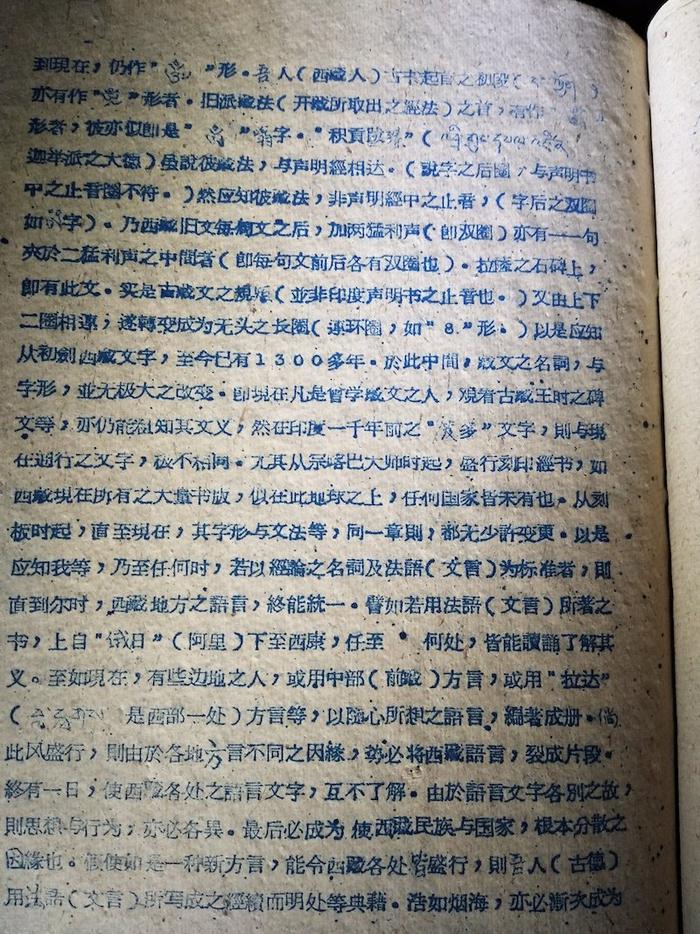 到現在，仍作" "形。吾人（西藏人）古书起首之初段（
亦有作" "形者。旧派藏法（开藏所取出之經法）之首，有作"
形者，彼亦似即是" " 字。"积貢
迦举派之大德）虽說彼藏法，与声明經相达。（說字之后圈，与声明书
中之止音圈不符。）然应知彼藏法，非声明經中之止音，（字后之双圈
如 字）。乃西藏旧文每句文之后，加两猛利声（卽双圈）亦有一一句
夾於二猛利声之中間者（卽每句文前后各有双圈也）。拉薩之石碑上，
卽有此文。实是古藏文之規 （並非印度声明书之止音也。）又由上下
二圈相連，遂轉变成为无头之长圈（連环圈，如"8"形。）以是应知
从初創西藏文字，至今已有1300多年。於此中間，藏文之名詞，与
字形，並无极大之改变。卽現在凡是曾学藏文之人，观看古藏王时之碑
文等，亦仍能粗知其文义，然在印度一千年前之" "文字，則与現
在通行之文字，极不相同。尤其从宗喀巴大师时起，盛行刻印經书，如
西藏現在所有之大量书版，似在此地球之上，任何国家皆未有也。从刻
板时起，直至現在，其字形与文法等，同一章則，都无少許变更。以是
应知我等，乃至任何时，若以經論之名詞及法語（文言）为标准者，則
直到尔时，西藏地方之語言，終能統一。譬如若用法語（文言）所著之
书，上自"俄日"（阿里）下至西康，任至 何处，皆能讀誦了解其
义。至如現在，有些边地之人，或用中部（前藏）方言，或用"拉达"
（ 是西部一处）方言等，以隨心所想之語言，編著成册。倘
此风盛行，則由於各地方言不同之因緣，势必将西藏語言，裂成片段。
終有一日，使西藏各处之語言文字，互不了解。由於語言文字各別之故，
則思想与行为，亦必各異。最后必成为使西藏民族与国家，根本分散之
因緣也。假使如是一种新方言，能令西藏各处皆盛行，則吾人（古德）
用法語（文言）所写成之經續而明处等典藉。浩如烟海，亦必漸次成为